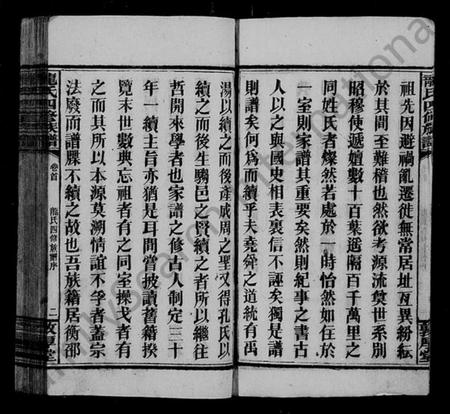 龍氏四修族譜
敦厚堂
祖先因避禍亂遷徙無常居址互異粉紜
於其間至難稽也然欲考源流奠世系別
昭穆使遞嬗數十百葉遙隔百千萬里之
同姓氏者燦然若處於一時怡然如在於
一室則家譜其重要矣然則紀事之書古
人以之與國史相表裏信不誣矣獨是譜
則譜矣何為而續乎夫堯舜之道統有禹
湯以續之而後產成周之聖又得孔氏以
續之而後生鄒邑之賢續之者所以繼往
哲開來學者也家譜之修古人制定三十
年一續主旨亦猶是耳間嘗披讀舊籍揆
覽末世數典忘祖者有之同室操戈者有
之而其所以本源莫溯情誼不孚者蓋宗
法廢而譜牒不續之故也吾族籍居衡邵
龍氏四修族譜
卷首
龍氏四修族譜序
二
敦厚堂
International